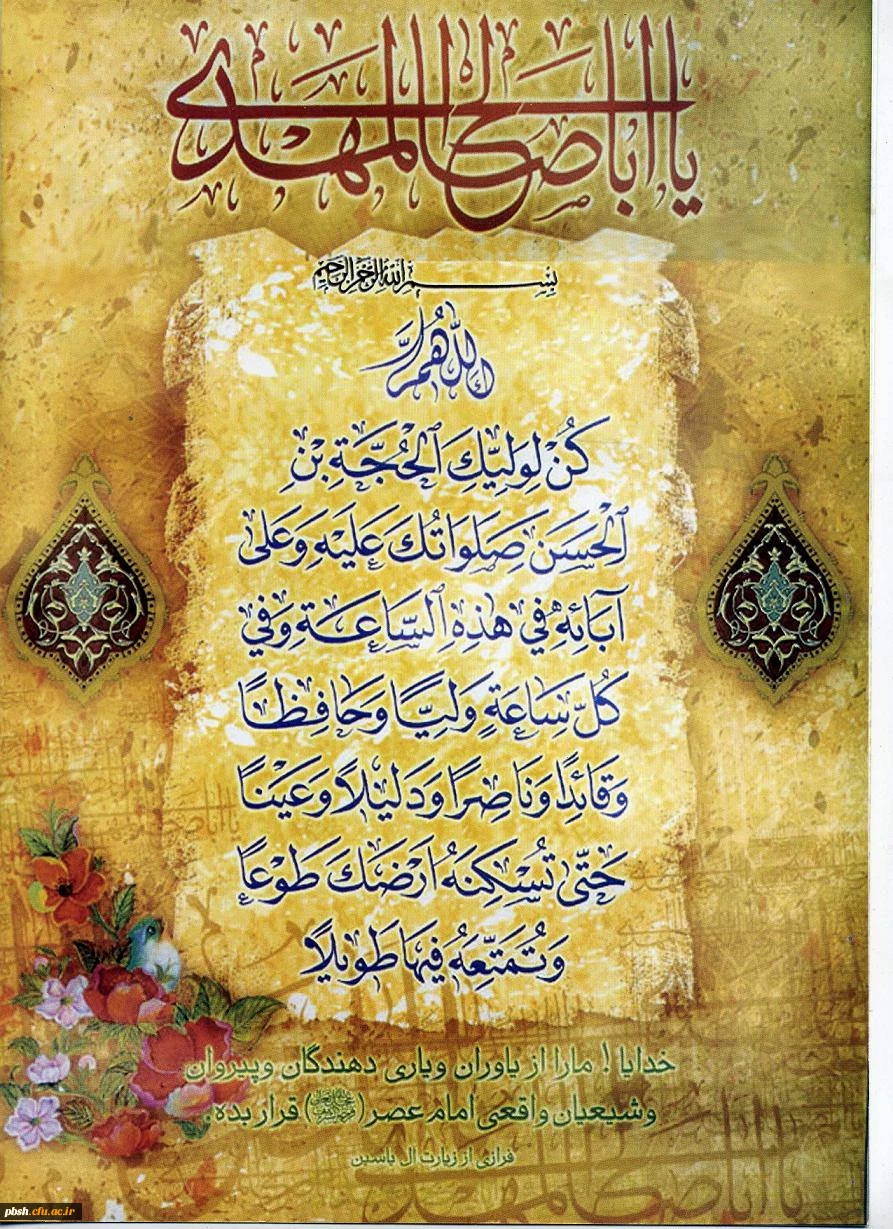 يا أباصالح المهدى
بِسْمِ اللهِ الرَّحْمٰنِ الرَّحِيمِ
اَللّٰهُمَّ
كُنْ لِوَلِيِّكَ ٱلْحُجَّةِ بْنِ
ٱلْحَسَنِ صَلَوَاتُكَ عَلَيْهِ وَعَلَى
آبَائِهِ فِي هٰذِهِ ٱلسَّاعَةِ وَفِي
كُلِّ سَاعَةٍ وَلِيًّا وَحَافِظًا
وَقَائِدًا وَنَاصِرًا وَدَلِيْلًا وَعَيْنًا
حَتّٰى تُسْكِنَهُ اَرْضَكَ طَوْعًا
وَتُمَتِّعَهُ فِيهَا طَوِيلًا
خدایا ! مارا از یاوران ویاری دهندگان وپیروان
وشیعیان واقعی امام عصر (عجل الله تعالی فرجه الشریف) قرار بده.
فرازی از زیارت آل یاسین
pbsh.cfu.ac.ir